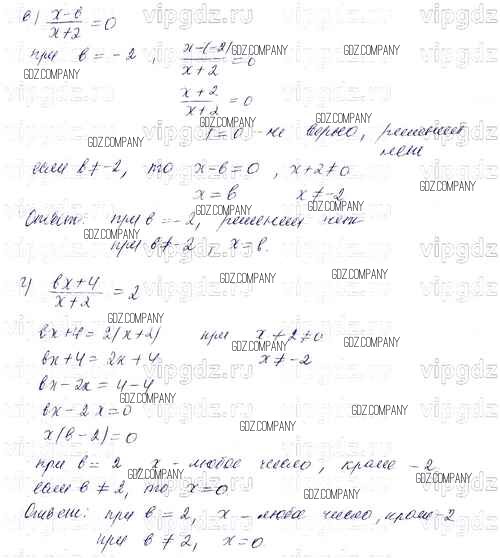 в) (x-в)/(x+2) = 0
при в = -2, (x-(-2))/(x+2) = 0
(x+2)/(x+2) = 0
1 = 0 - не верно, решений
нет
если в ≠ -2, то x-в=0, x+2≠0
x = в x ≠ -2
Ответ: при в = -2, решений нет
при в ≠ -2, x = в.
г) (вx+4)/(x+2) = 2
вx+4 = 2(x+2) при x+2≠0
вx+4 = 2x+4 x ≠ -2
вx - 2x = 4-4
вx - 2x = 0
x(в-2) = 0
при в = 2 x - любое число, кроме -2
если в ≠ 2, то x = 0
Ответ: при в = 2, x - любое число, кроме -2
при в ≠ 2, x = 0